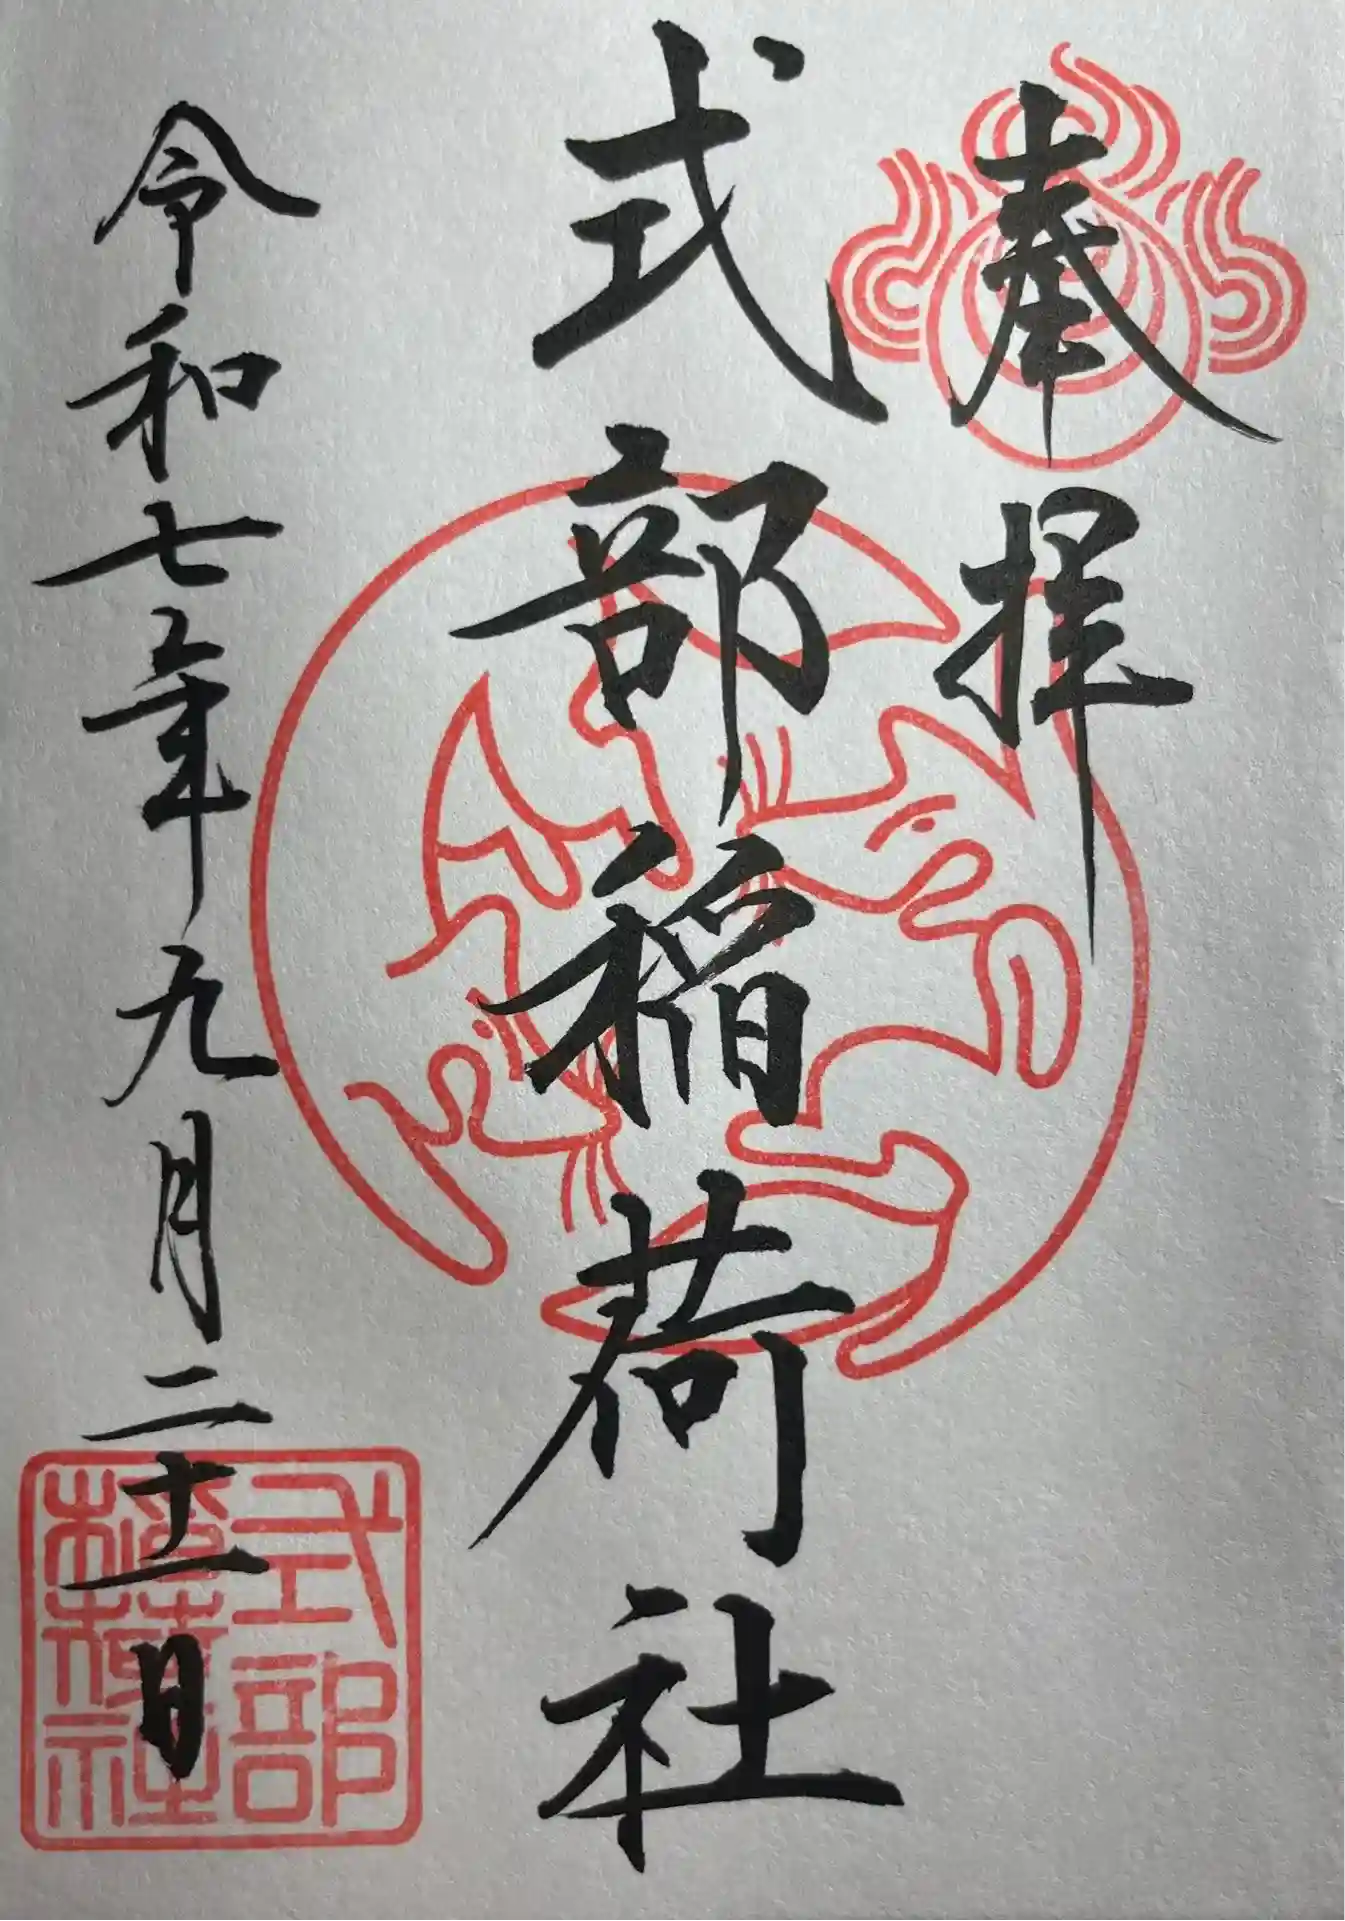 奉拝
式部稲荷社
令和七年九月二十一日
式部
稲荷社